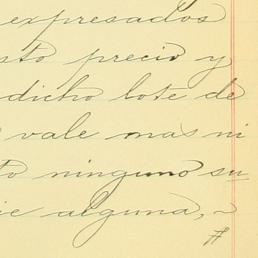 expresados
sto precio y
dicho lote de
vale mas ni
to ninguno su
ie alguna, ~
#